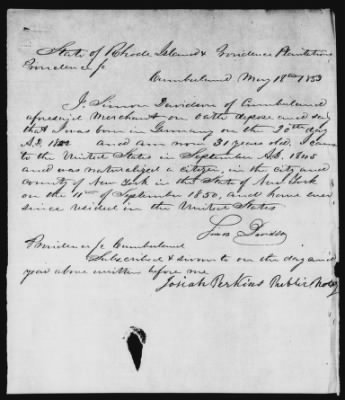 State of Rhode Island & Providence Plantations
Providence Sc
Cumberland May 18th 1853
I, Simon Davidson of Cumberland
aforesaid Merchant on oath depose and say
that I was born in Germany on the 20th day
A.D. and am now 31 years old. I came
to the United States in September A.D. 1845
and was naturalized a citizen, in the city and
county of New York in the State of New York
on the 11th of September 1850, and have ever
since resided in the United States
Simon Davidson
Providence Sc Cumberland
Subscribed & sworn to on the day and
year above written before me
Josiah Perkins Public Notary